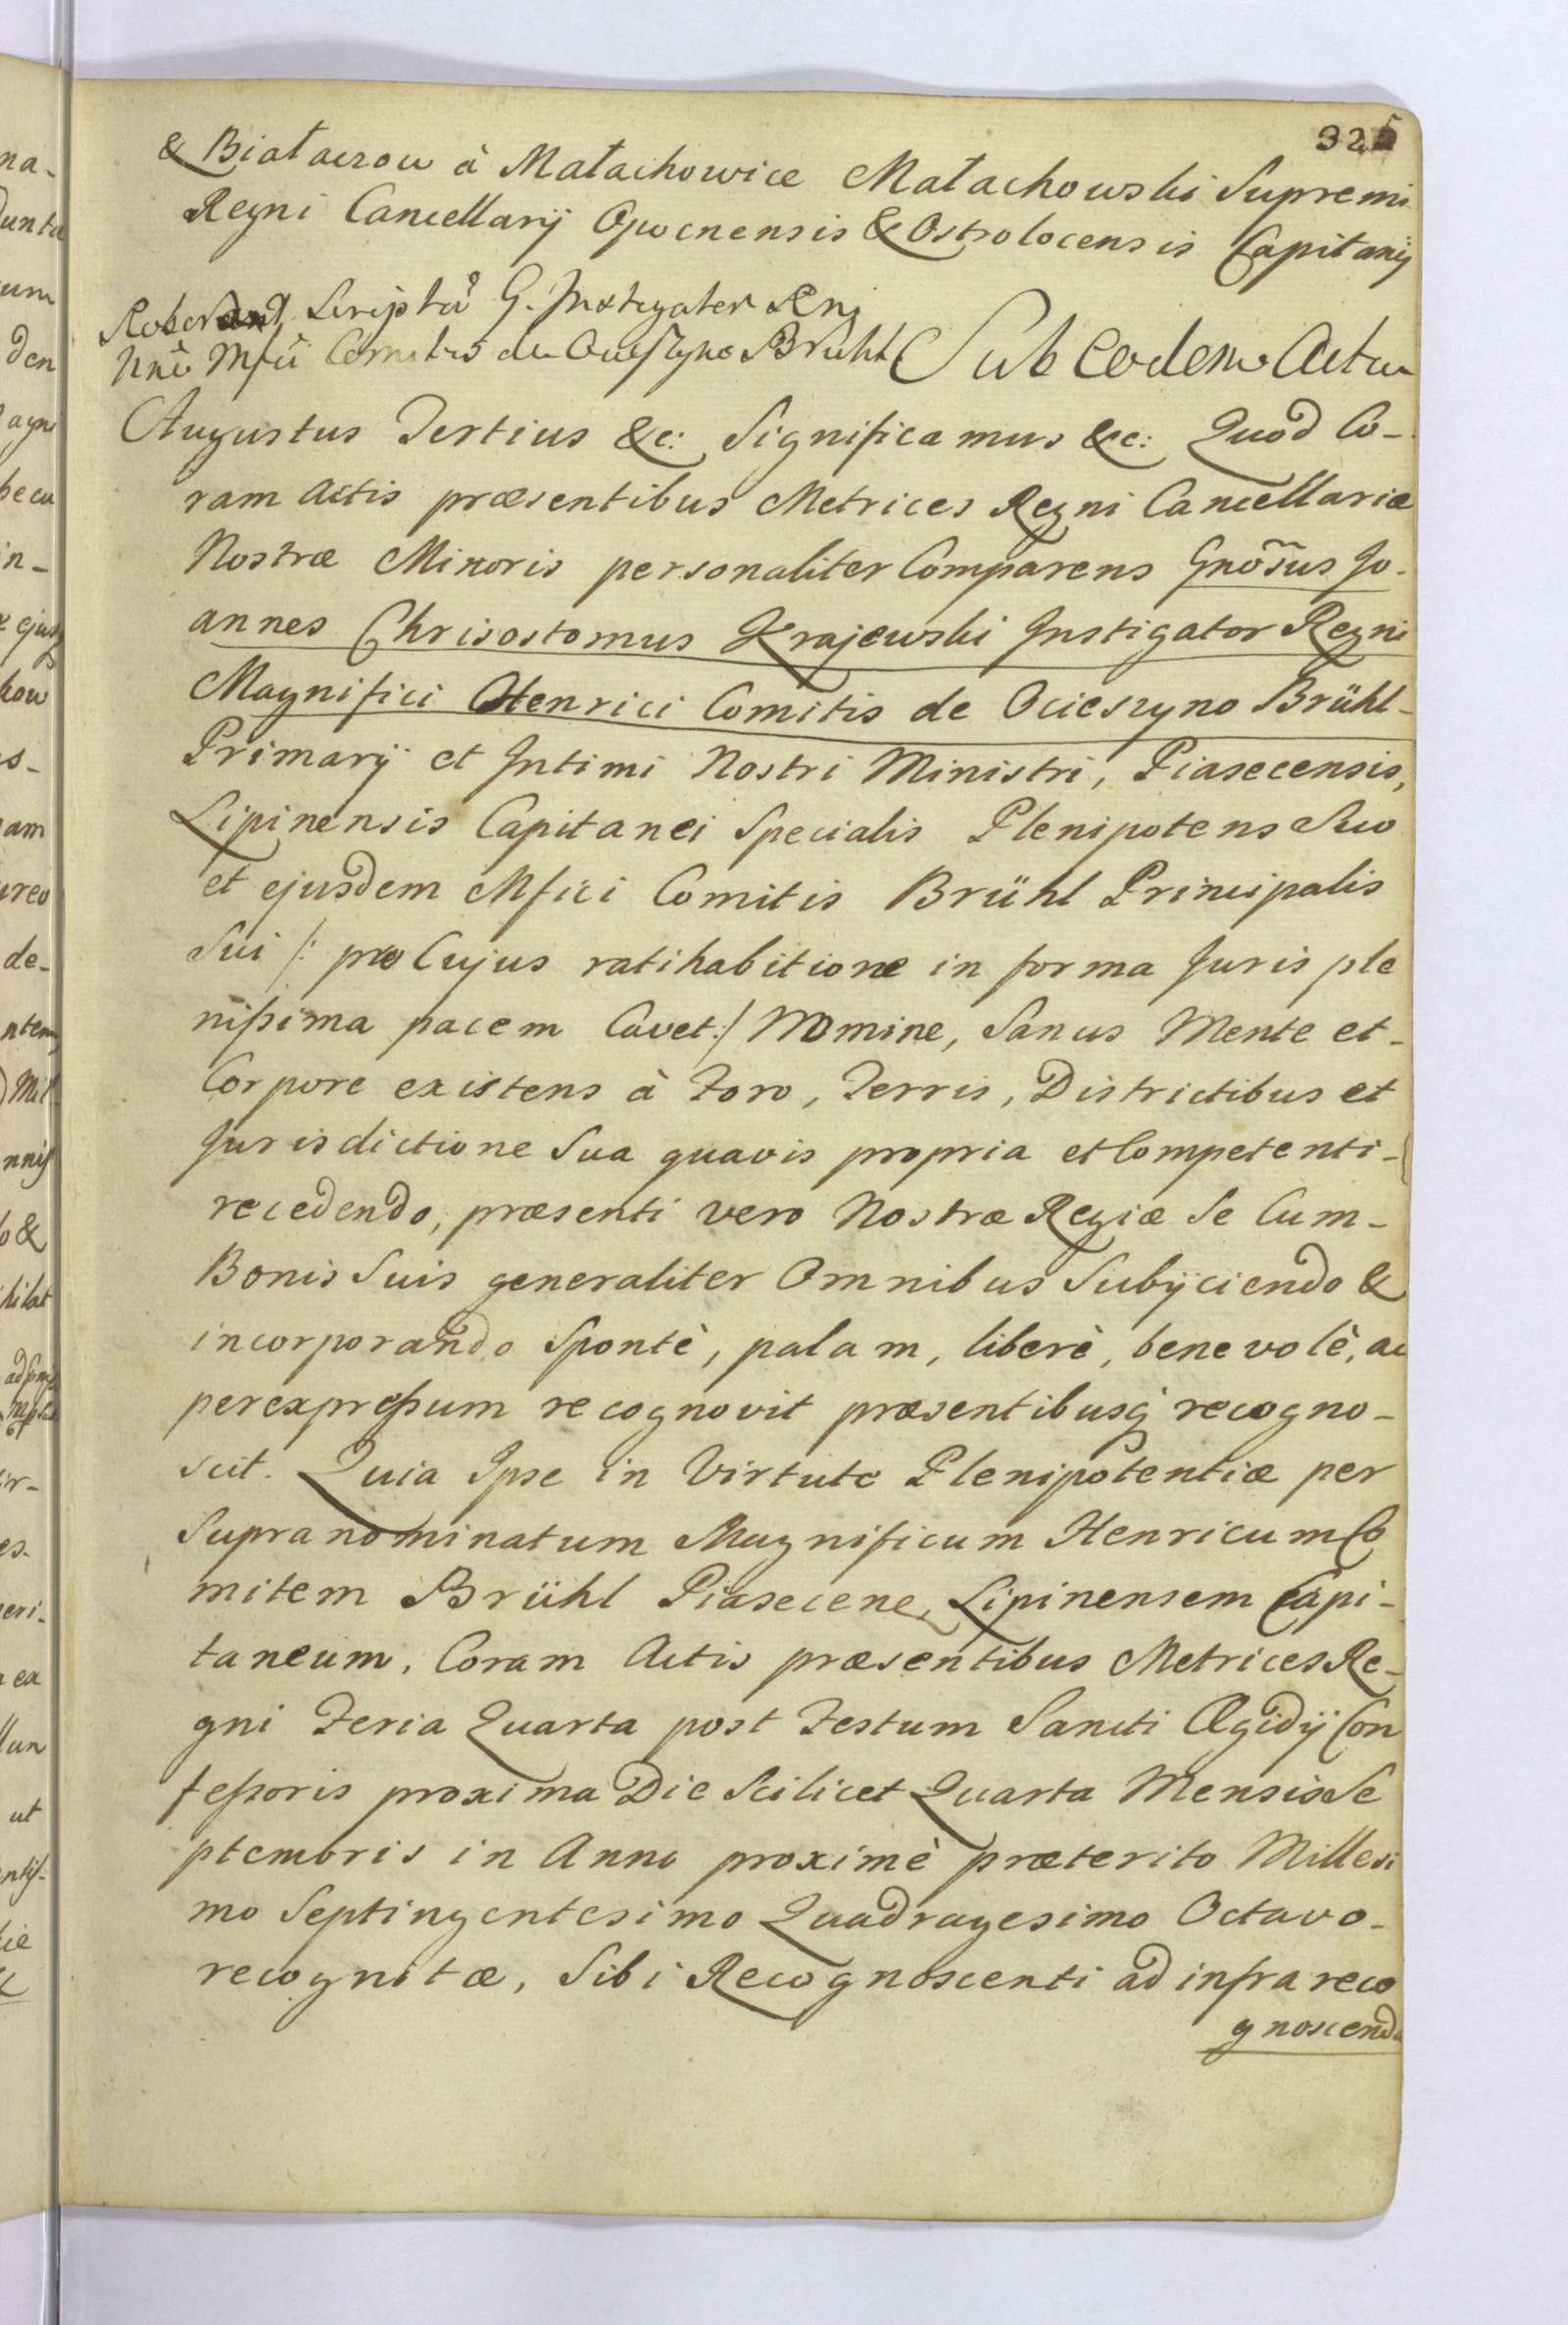 325
& Białaczow à Małachowice Małachowski Supremi
Regni Cancellarij Opocnensis & Ostrolocensis Capitanij
Roborand. Scripta G. Instigator Rni
Nnê Mfci Comitis de Ocieszyno Brühl Sub Eodem Actu
Augustus Tertius &c: Significamus &c: Quod Co-
ram Actis præsentibus Metrices Regni Cancellariæ
Nostræ Minoris personaliter Comparens Gnõsus Jo-
annes Chrisostomus Krajewski Instigator Regni
Magnifici Henrici Comitis de Ocieszyno Brühl-
Primarij et Intimi Nostri Ministri, Piasecensis,
Lipinensis Capitanei Specialis Plenipotens Suo
et ejusdem Mfici Comitis Brühl Principalis
Sui /: pro Cujus ratihabitione in forma Juris ple
nissima pacem Cavet :/ Nomine, Sanus Mente et-
Corpore existens à Foro, Terris, Districtibus et
Jurisdictione Sua quavis propria et Competenti-
recedendo, præsenti vero Nostræ Regiæ Se Cum-
Bonis Suis generaliter Omnibus Subijciendo &
incorporando Spontè, palam, liberè, benevolè, ac
perexpressum recognovit præsentibusq recogno-
scit. Quia Ipse in Virtute Plenipotentiæ per
Supranominatum Magnificum Henricum Co
mitem Brühl Piasecene, Lipinensem Capi-
taneum, Coram Actis præsentibus Metrices Re-
gni Feria Quarta post Festum Sancti Ægidij Con
fessoris proxima Die Scilicet Quarta Mensis Se
ptembris in Anno proximè præterito Millesi
mo Septingentesimo Quadragesimo Octavo-
recognitæ, Sibi Recognoscenti ad infra reco
gnoscenda